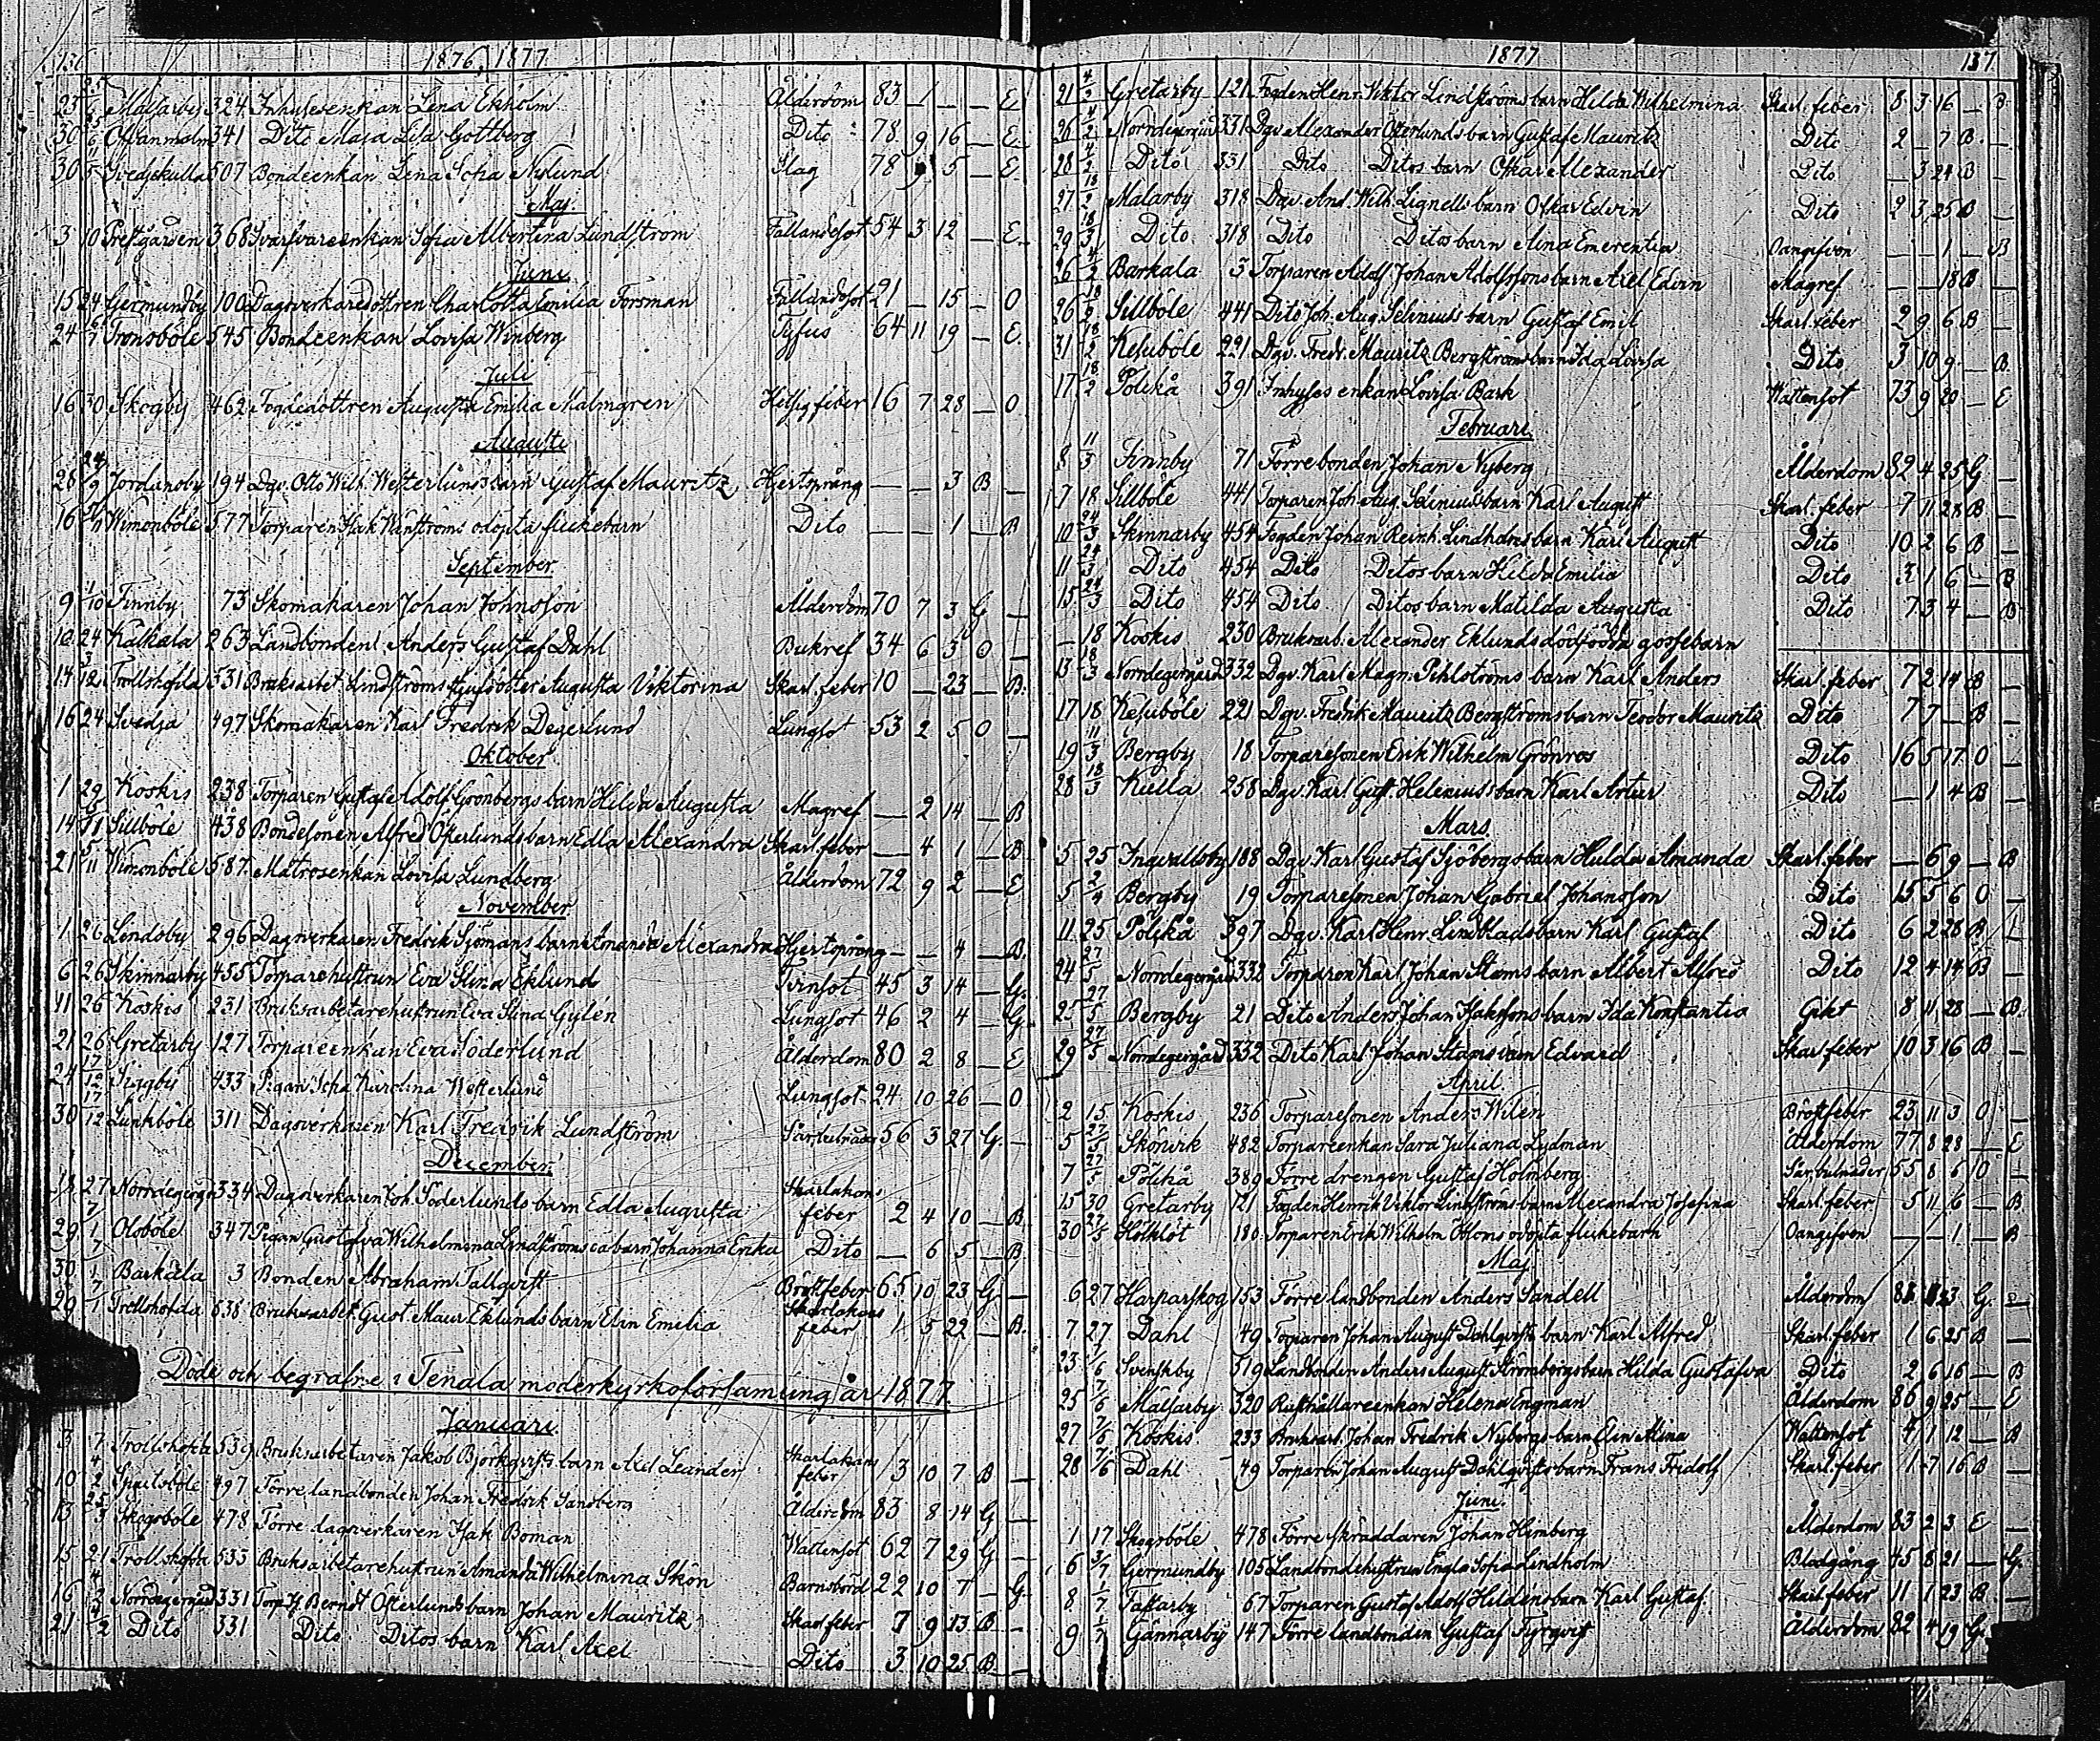 136 1876, 1877
23 Malarby 324 Inhysesenkan Lena Ekholm Ålderdom 83 1 — — E.
30 341 Dito Maja Lisa Gottberg Dito 78 9 16 — E.
30 Svedjekulla 507 Bondeenkan Lena Sofia Nylund Slag 78 9 5 — E.
Maj.
3 10 Prestgården 368 Sofia Albertina Lundström Fallandesot 54 3 12 — E.
Juni
15 24 Germundby 100 Dagsverkaredottren Charlotta Emilia Forsman Fallandesot 21 — 15 — O
24 Trönsböle 545 Bondeenkan Lovisa Winberg Tyfus 64 11 19 — E.
Juli
16 30 Skogby 462 Fogdedottren Augusta Emilia Malmgren Hetsig feber 16 7 28 — O
Augusti
28 Jordansby 194 Dgv. Otto Wilh. Westerlunds barn Gustaf Mauritz Hjertsprång — — 3 B —
16 Wimonböle 577 Torparen Isak odöpta flickebarn Dito — — 1 — B.
September
9 1/10 Finnby 73 Skomakaren Johan Johnsson Ålderdom 70 7 3 G —
10 24 Källkala 263 Landbonden Anders Gustaf Dahl Bukref 34 6 3 O —
14 Trollshofda 531 Bruksarbet. Lindströms Augusta Viktorina Skarl. feber 10 — 23 — B.
16 24 Svedja 497 Skomakaren Karl Fredrik Degerlund Lungsot 53 2 5 O —
Oktober
1 29 Koskis 238 Torparen Gustaf Adolf Grönbergs barn Hilda Augusta Magref — 2 14 — B
14 Sillböle 438 Bondesonen Alfred Österlunds barn Edla Alexandra Skarl. feber — 4 1 — B
21 5/11 Wimonböle 587 Matrosenkan Lovisa Lundberg Ålderdom 72 9 2 — E
November
1 26 Lindsby 296 Dagsverkaren Fredrik Sjömans barn Amanda Alexandra Hjertsprång — — 4 — B.
6 26 Skinnarby 455 Torparehustrun Eva Stina Eklund Tvinsot 45 3 14 — G.
11 26 Koskis 231 Bruksarbetarehustrun Eva Stina Gylén Lungsot 46 2 4 — G.
21 26 Gretarby 127 Torpareenkan Eva Söderlund Ålderdom 80 2 8 — E
24 17/12 433 Pigan Sofia Karolina Westerlund Lungsot 24 10 26 — O
30 17/12 Lunkböle 311 Dagsverkaren Karl Fredrik Lundström 56 3 27 G. —
December.
18 27 Norrdegergård 334 Dagsverkaren Joh. Söderlunds barn Edla Augusta Skarlakansfeber 2 4 10 — B
29 7/1 Olsböle 347 Pigan Gustafva Wilhelmina Lindströms oä barn Johanna Erika Dito — 6 5 — B.
30 7/1 Barkala 3 Bonden Abraham Tallqvist Bröstfeber 65 10 23 G —
29 7/1 Trollshofda 538 Bruksarbet. Gust. Maur. Eklunds barn Elin Emilia Skarlakansfeber 1 5 22 — B.
Döde och begrafne i Tenala moderkyrkoförsamling år 1877.
Januari.
3 7 Trollshofda 539 Bruksarbetaren Jakob Björkqvists barn Axel Leander Skarlakansfeber 3 10 7 B —
10 4/2 497 Förre landbonden Johan Fredrik Sandberg Ålderdom 83 8 14 G —
13 25/3 Skogsböle 478 Förre dagsverkaren Isak Boman Wattensot 62 7 29 G —
15 21 Trollshofda 533 Bruksarbetarehustrun Amanda Wilhelmina Skön Barnsbörd 22 10 7 — G
16 4/2 Norrdegergård 331 Torp. Berndt Österlunds barn Johan Mauritz Skarl. feber 7 9 13 B —
21 4/2 Dito 331 Dito Ditos barn Karl Axel Dito 3 10 25 B —
1877 137
21 4/2 Gretarby 121 Fogden Henr. Viktor Lindströms barn Hilda Wilhelmina Skarl. feber 8 3 16 — B
26 4/2 Norrdegergård 331 Dgv. Alexander Österlunds barn Gustaf Mauritz Dito 2 — 7 B. —
28 4/2 Dito 331 Dito Ditos barn Oskar Alexander Dito — 3 24 B —
27 18/2 Malarby 318 Dgv. And. Wilh. Lignells barn Oskar Edvin Dito 2 3 25 B —
29 18/3 Dito 318 Dito Ditos barn Aina Emerentia Oangifven — — 1 — B
26 4/2 Barkala 3 Torparen Adolf Johan Adolfssons barn Axel Edvin Magref — — 18 B —
26 18/2 Sillböle 441 Dito Joh. Aug. Selenius's barn Gustaf Emil Skarl. feber 2 9 6 B —
31 18/2 Kesuböle 221 Dgv. Fredr. Mauritz Bergströms barn Ida Lovisa Dito 3 10 9 — B
17 18/2 Pölskå 391 Inhysesenkan Lovisa Bask Wattensot 73 9 20 — E
Februari.
8 11/3 Finnby 71 Förre bonden Johan Nyberg Ålderdom 82 4 25 G —
7 18 Sillböle 441 Torparen Joh. Aug. Selenius's barn Karl August Skarl. feber 7 11 28 B —
10 24/3 Skinnarby 454 Fogden Johan Reinh. Lindholms barn Karl August Dito 10 2 6 B —
11 24/3 Dito 454 Dito Ditos barn Hilda Emilia Dito 3 1 6 — B
15 24/3 Dito 454 Dito Ditos barn Matilda Augusta Dito 7 3 4 — B
— 18 Koskis 230 Bruksarb. Alexander Eklunds dödfödda gossebarn
13 18/3 Norrdegergård 332 Dgv. Karl Magn. Pihlströms barn Karl Anders Skarl. feber 7 2 14 B —
17 18 Kesuböle 221 Dgv. Fredrik Mauritz Bergströms barn Teodor Mauritz Dito 7 7 — B —
19 11/3 Bergby 18 Torparesonen Erik Wilhelm Grönroos Dito 16 5 17 O —
28 18/3 Kulla 258 Dgv. Karl Gust. Helenius's barn Karl Artur Dito — 1 4 B —
Mars.
5 25 Ingvallsby 188 Dgv. Karl Gustaf Sjöbergs barn Hulda Amanda Skarl. feber — 6 9 — B
5 2/4 Bergby 19 Torparesonen Johan Gabriel Johansson Dito 15 5 6 O —
11 25 Pölskå 397 Dgv. Karl Henr. Lindblads barn Karl Gustaf Dito 6 2 28 B —
24 27/5 Norrdegergård 332 Torparen Karl Johan Stams barn Albert Alfred Dito 12 4 14 B —
25 27/5 Bergby 21 Dito Anders Johan Isakssons barn Ida Konstantia Gikt 8 11 28 — B
29 27/5 Norrdegergård 332 Dito Karl Johan Stams barn Edvard Skarl. feber 10 3 16 B —
April.
2 15 Koskis 236 Torparesonen Anders Wilén Bröstfeber 23 11 3 O —
5 27/5 Skönvik 482 Torpareenkan Sara Juliana Lydman Ålderdom 77 8 28 — E
7 27/5 Pölskå 389 Förre drengen Gustaf Holmberg 55 8 6 O —
15 30 Gretarby 121 Fogden Henrik Viktor Lindströms barn Alexandra Josefina Skarl. feber 5 11 6 — B
30 27/5 180 Torparen Erik Wilhelm odöpta flickebarn Oangifven — — 1 — B
Maj
6 27 Harparskog 153 Förre landbonden Anders Sandell Ålderdom 23 G. —
7 27 Dahl 49 Torparen Johan August Dahlqvists barn Karl Alfred Skarl. feber 1 6 25 B —
23 7/6 Svenskby 519 Landbonden Anders August Strömbergs barn Hilda Gustafva Dito 2 6 16 — B
25 7/6 Malarby 320 Rusthållareenkan Helena Engman Ålderdom 86 9 25 — E
27 7/6 Koskis 233 Bruksarb. Johan Fredrik Nybergs barn Elin Alina Wattensot 4 1 12 — B
28 7/6 Dahl 49 Torparen Johan August Dahlqvists barn Frans Fridolf Skarl. feber 1 7 16 B —
Juni.
1 17 Skogsböle 478 Förre skräddaren Johan Himberg Ålderdom 83 2 3 E —
6 3/7 Germundby 105 Landbondehustrun Engla Sofia Lindholm Blodgång 45 8 21 — G.
8 1/7 Fallarby 67 Torparen Gustaf Adolf Hildéns barn Karl Gustaf Skarl. feber 11 1 23 B —
9 1/7 Gännarby 147 Förre landbonden Gustaf Fyrqvist Ålderdom 82 4 19 G.